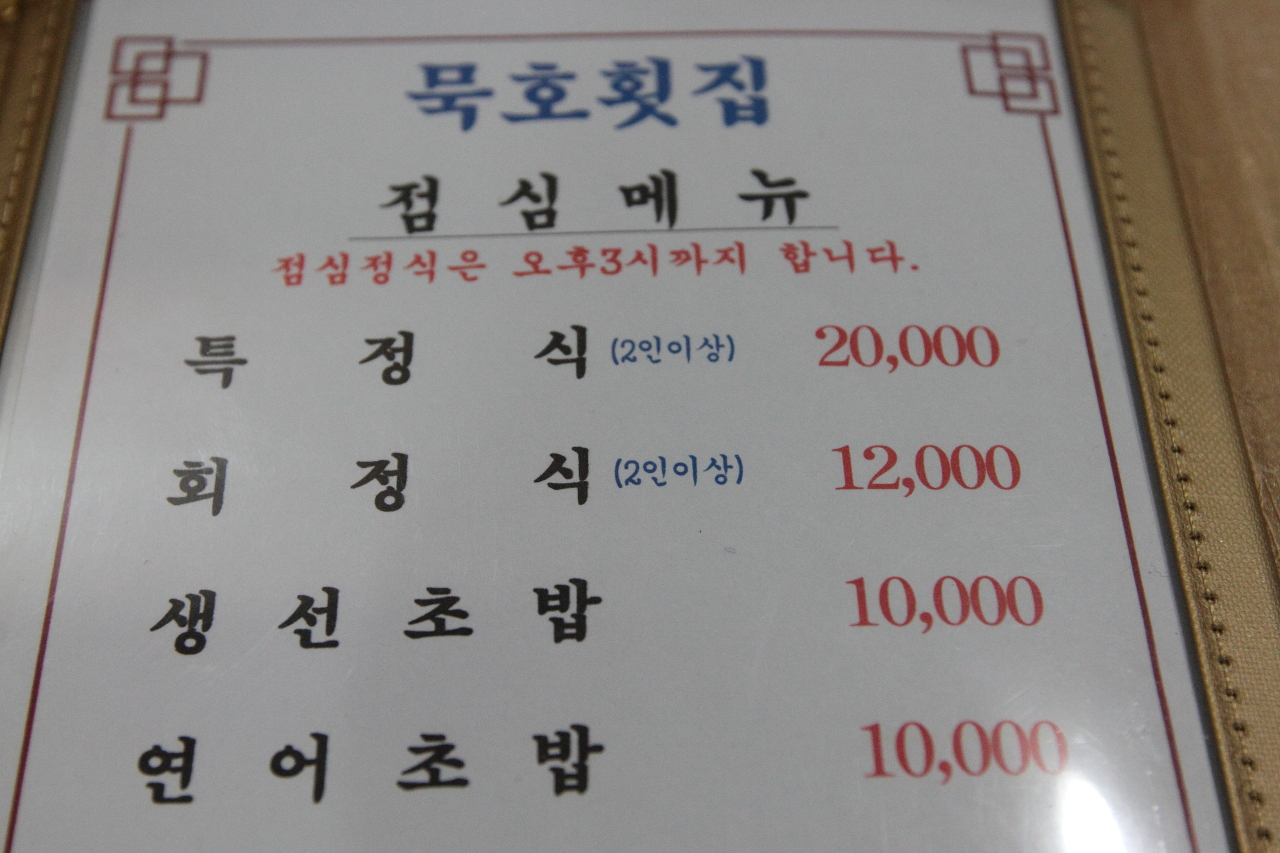 묵호횟집
점심메뉴
점심정식은 오후3시까지 합니다.
특정식(2인이상) 20,000
회정식(2인이상) 12,000
생선초밥 10,000
연어초밥 10,000